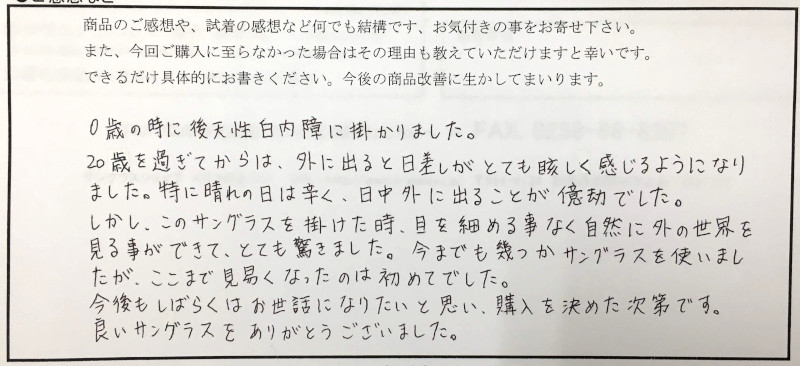 商品のご感想や、試着の感想など何でも結構です、お気付きの事をお寄せ下さい。
また、今回ご購入に至らなかった場合はその理由も教えていただけますと幸いです。
できるだけ具体的にお書きください。今後の商品改善に生かしてまいります。
0歳の時に後天性白内障に掛かりました。
20歳を過ぎてからは、外に出ると日差しがとても眩しく感じるようになり
ました。特に晴れの日は辛く、日中外に出ることが億劫でした。
しかし、このサングラスを掛けた時、目を細める事なく自然に外の世界を
見る事ができて、とても驚きました。今までも幾つかサングラスを使いまし
たが、ここまで見易くなったのは初めてでした。
今後もしばらくはお世話になりたいと思い、購入を決めた次第です。
良いサングラスをありがとうございました。